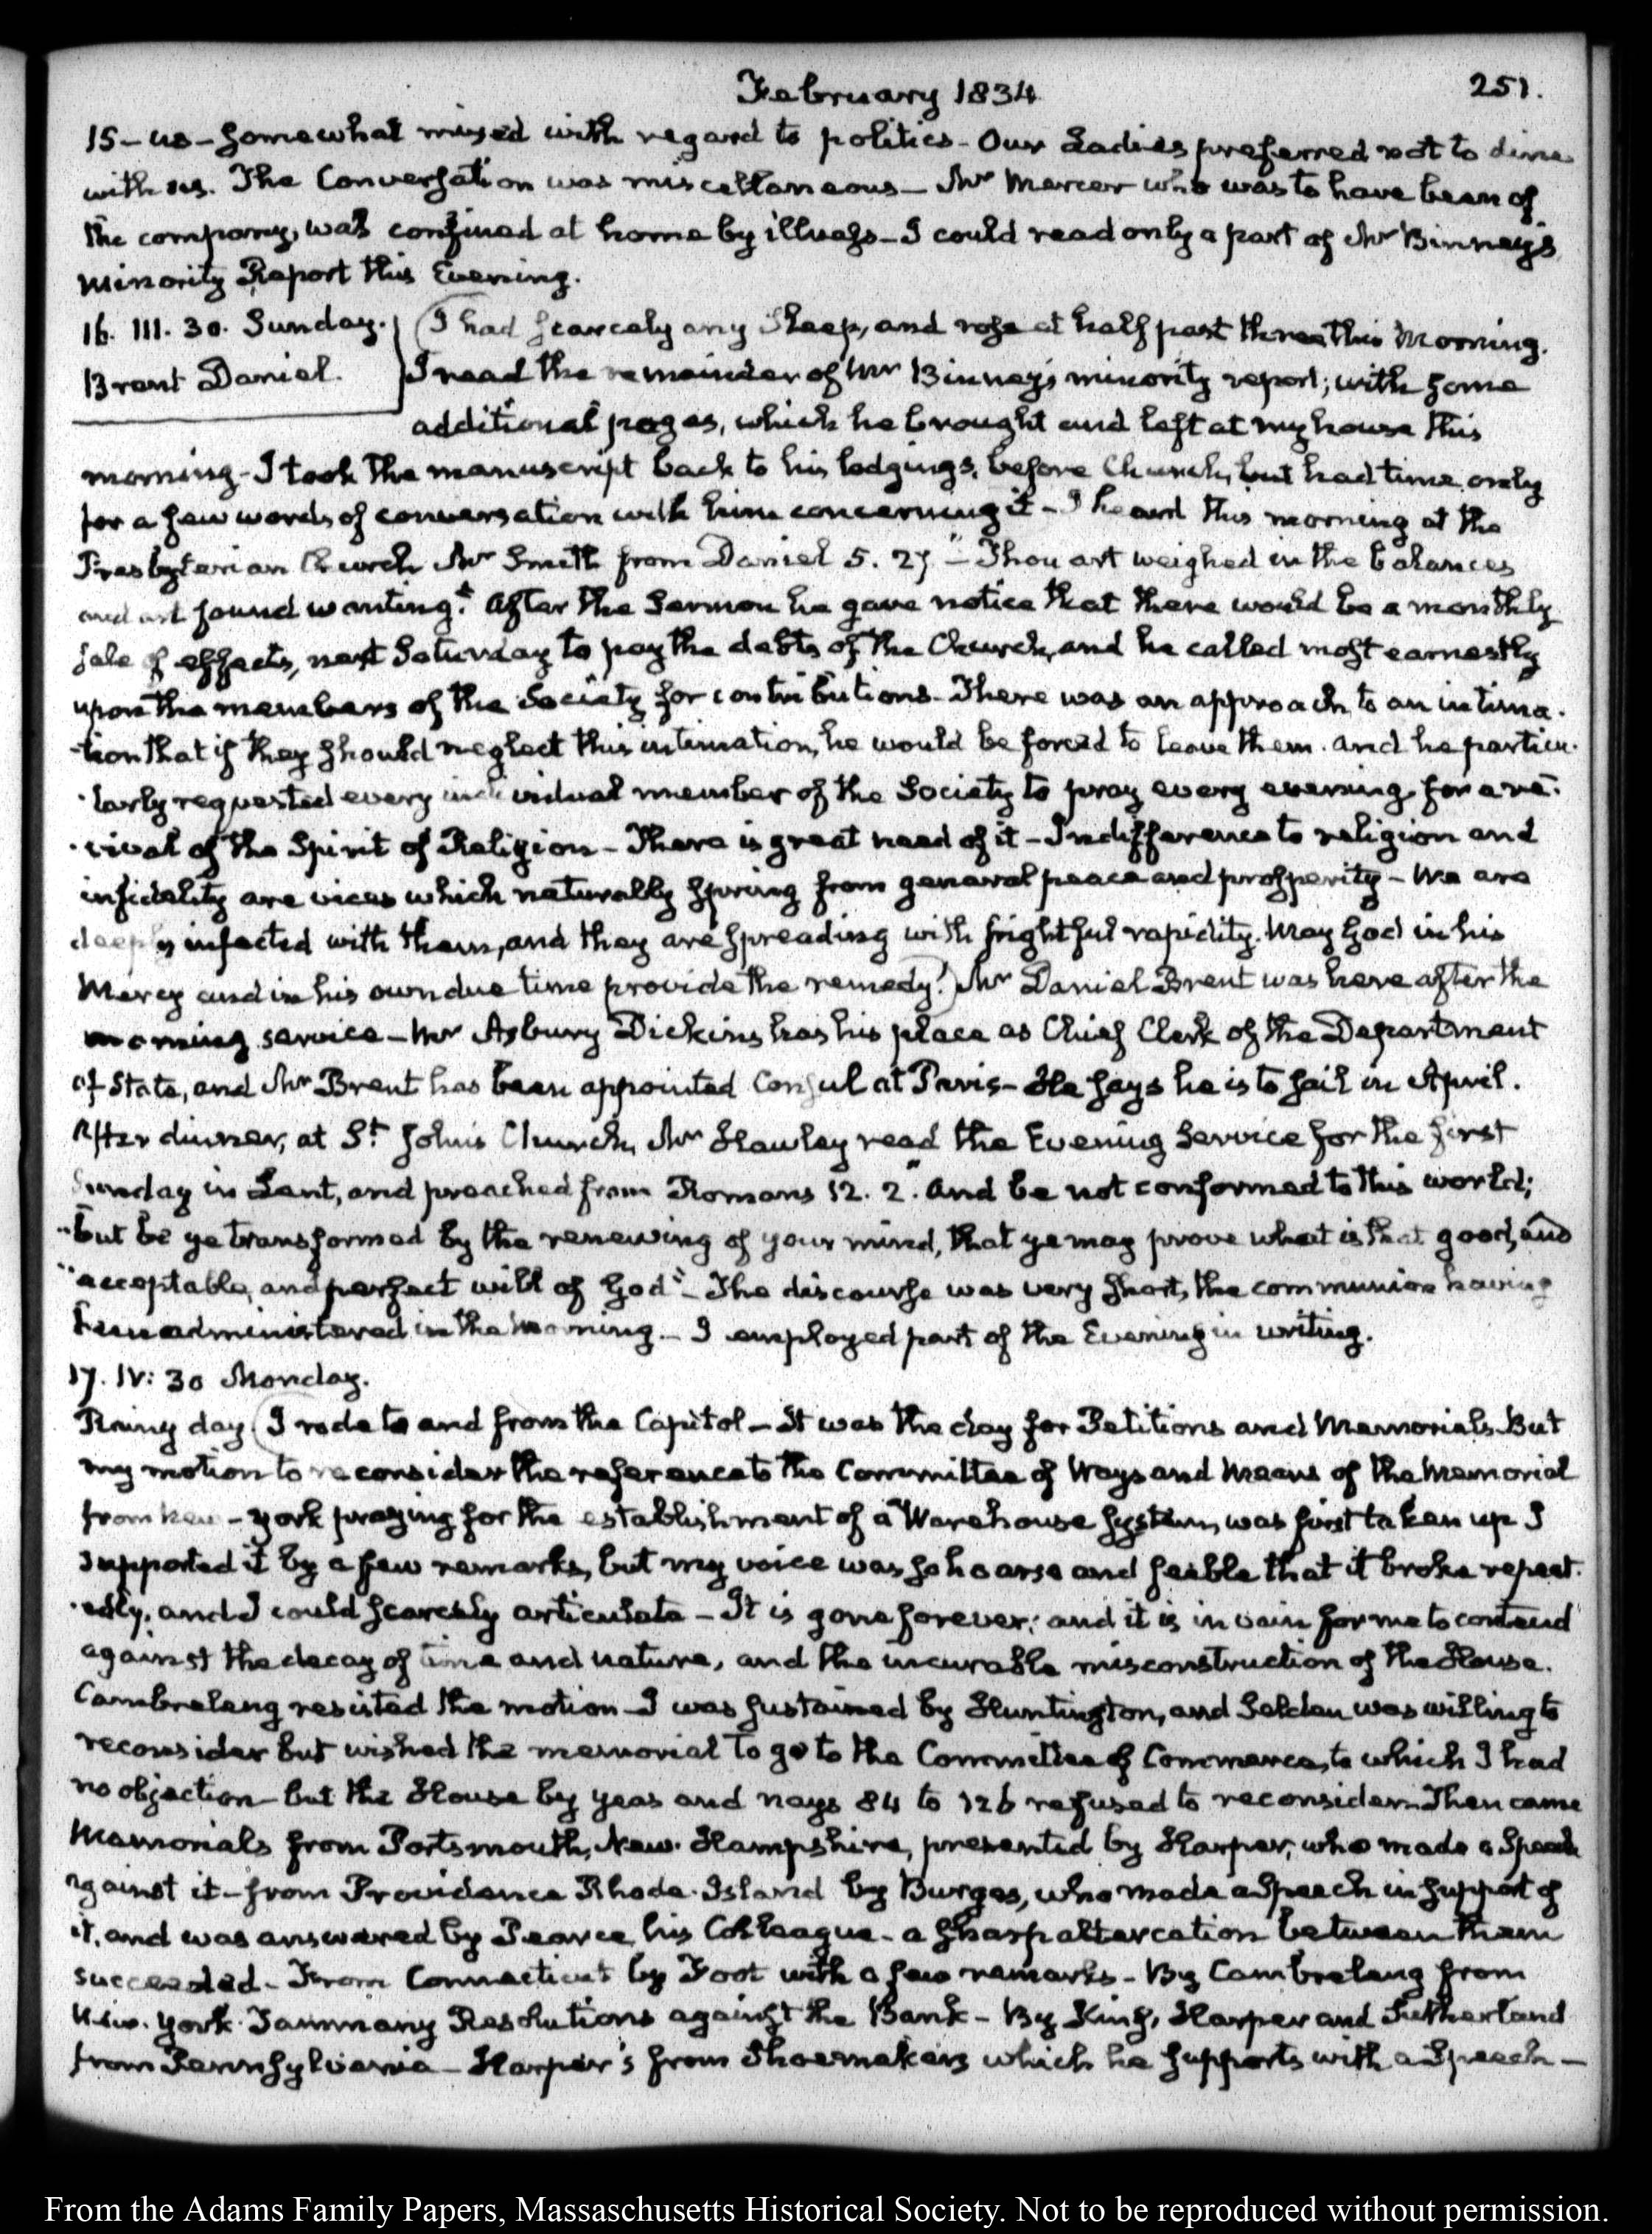 February 1834
251.
15 – us – somewhat mixed with regard to politics – Our Ladies preferred not to dine
with us. The Conversation was miscellaneous – Mr Mercer who was to have been of
the company, was confined at home by illness – I could read only a part of Mr Binney's
minority Report this Evening.
16. III. 30. Sunday. I had scarcely any sleep, and rose at half past three this Morning.
Brent Daniel. I read the remainder of Mr Binney's minority report; with some
additional pages, which he brought and left at my house this
morning – I took the manuscript back to his lodgings, before Church, but had time only
for a few words of conversation with him concerning it – I heard this morning at the
Presbyterian Church Mr Smith from Daniel 5. 27 "Thou art weighed in the balances
and art found wanting." After the Sermon he gave notice that there would be a monthly
sale of effects, next Saturday to pay the debts of the Church, and he called most earnestly
upon the members of the Society for contributions – There was an approach to an intima-
-tion that if they should neglect this intimation, he would be forced to leave them. and he particu-
-larly requested every individual member of the Society to pray every evening, for a re-
-vival of the Spirit of Religion – There is great need of it – Indifference to religion and
infidelity are vices which naturally spring from general peace and prosperity – We are
deeply infected with them, and they are spreading with frightful rapidity. May God in his
Mercy and in his own due time provide the remedy! Mr Daniel Brent was here after the
morning service – Mr Asbury Dickins has his place as Chief Clerk of the Department
of State, and Mr Brent has been appointed Consul at Paris – He says he is to sail in April.
After dinner, at St. John's Church, Mr Hawley read the Evening Service for the first
Sunday in Lent, and preached from Romans 12. 2. "And be not conformed to this world;
"but be ye transformed by the renewing of your mind, that ye may prove what is that good, and
"acceptable, and perfect will of God" – The discourse was very short, the communion having
been administered in the Morning – I employed part of the Evening in writing.
17. IV: 30 Monday.
Rainy day I rode to and from the Capitol – It was the day for Petitions and Memorials. But
my motion to reconsider the reference to the Committee of Ways and Means of the Memorial
from New-York praying for the establishment of a Warehouse system, was first taken up I
supported it by a few remarks, but my voice was so hoarse and feeble that it broke repeat-
-edly, and I could scarcely articulate – It is gone forever; and it is in vain for me to contend
against the decay of time and nature, and the incurable misconstruction of the House.
Cambreleng resisted the motion – I was sustained by Huntington, and Selden was willing to
reconsider but wished the memorial to go to the Committee of Commerce, to which I had
no objection – but the House by yeas and nays 84 to 126 refused to reconsider – Then came
Memorials from Portsmouth, New-Hampshire, presented by Harper, who made a Speech
against it – from Providence Rhode-Island by Burges, who made a Speech in support of
it, and was answered by Pearce his Colleague – a sharp altercation between them
succeeded – From Connecticut by Foot with a few remarks – By Cambreleng from
New-York Tammany Resolutions against the Bank – By King, Harper and Sutherland
from Pennsylvania – Harper's from Shoemakers which he supports with a Speech –
From the Adams Family Papers, Massaschusetts Historical Society. Not to be reproduced without permission.